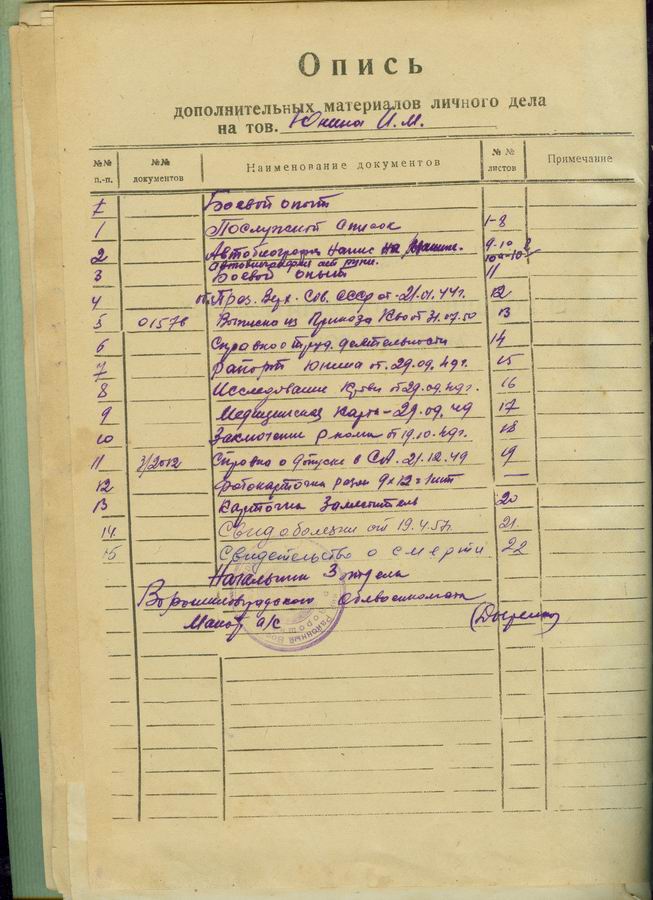 Опись
дополнительных материалов личного дела
на тов. Юнина И.М.
№№ п.-п. №№ документов Наименование документов №№ листов Примечание
1 Боевой опыт
1 Послужной список 1-8
2 Автобиография напис на машине. 9-10
Автобиография от руки.
3 Боевой опыт 11
4 През. Верх. Сов. СССР от 21.01.44г. 12
5 01576 Выписка из Приказа КВО от 31.07.50 13
6 Справка о труд. деятельности 14
7 рапорт Юнина от 29.09.49г. 15
8 Исследование крови от 29.09.49г. 16
9 Медицинская карта - 29.09.49 17
10 Заключение от 19.10.49г. 18
11 3/2012 Справка о допуске в СА. 21.12.49 19
12 Фотокарточка разм 9х12 = 1шт —
13 Карточка Заместитель 20
14. Свид о болезни от 19.4.57г. 21.
15 Свидетельство о смерти 22
Начальник 3 отдела
Ворошиловградского Облвоенкомата
а/с